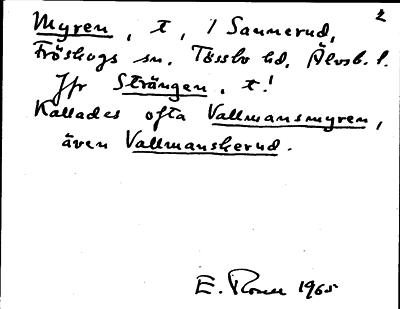 2
Myren, t, i Sannerud,
Fröskogs sn. Tössbo hd, Älvsb. l.
Jfr Strängen, t!
Kallades ofta Vallmansmyren,
även Vallmanskerud.
E. 1965